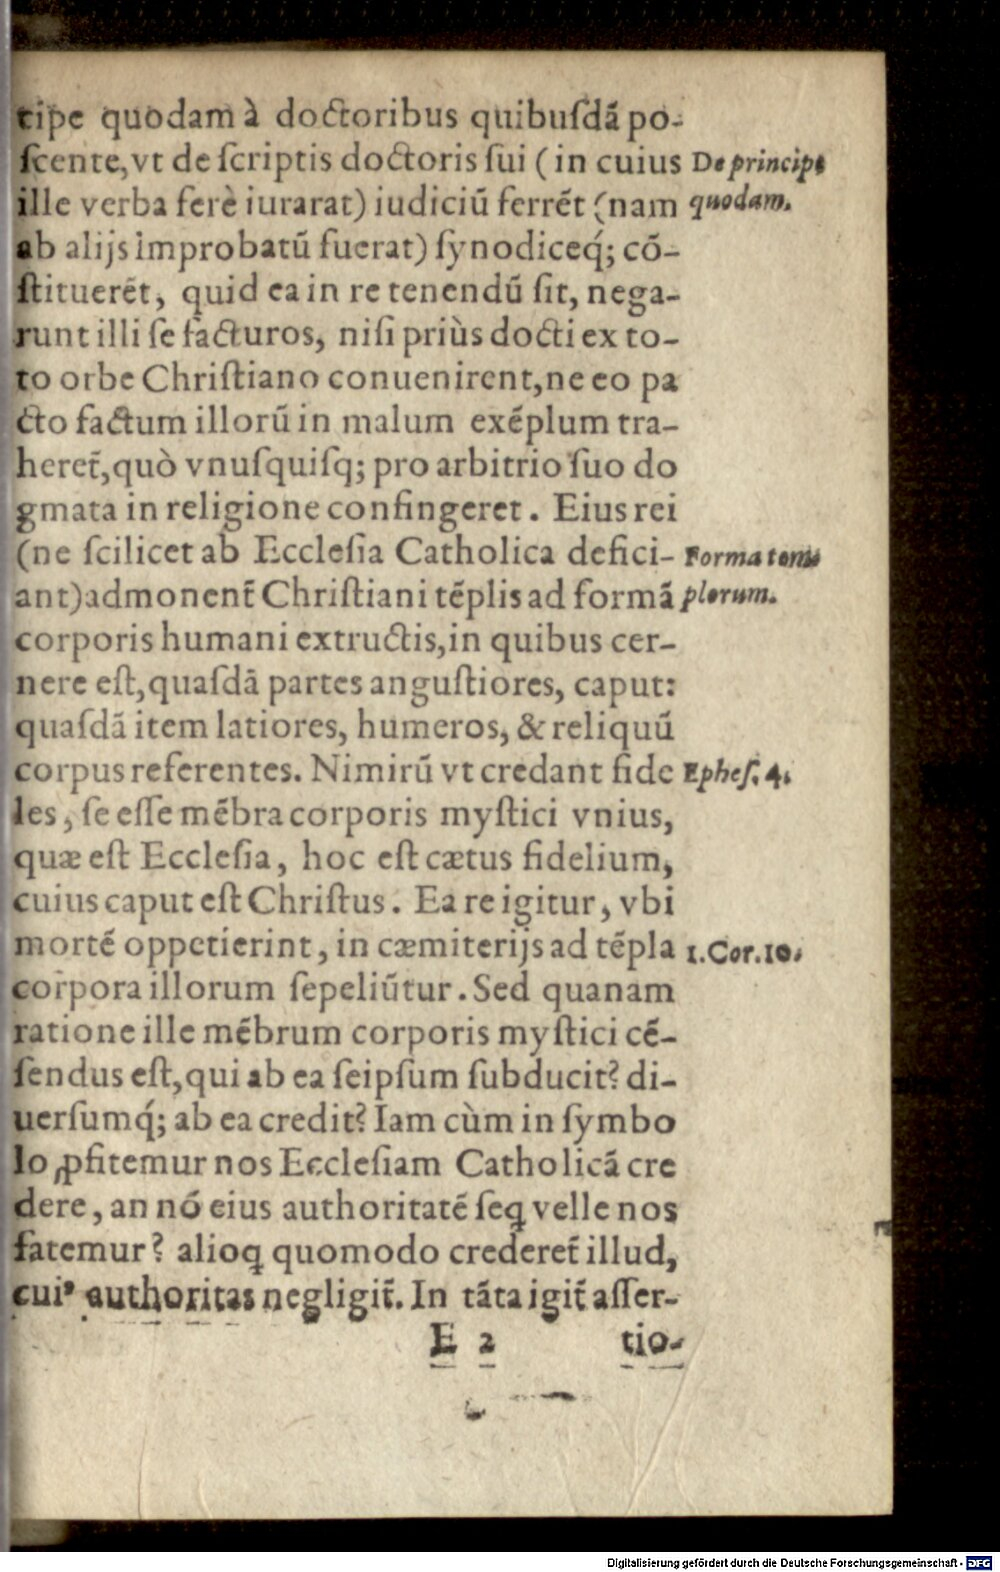 cipe quodam à doctoribus quibuſdã po-
ſcente, vt de ſcriptis doctoris ſui (in cuius
De principe
ille verba ferè iurarat) iudiciũ ferrẽt (nam
quodam.
ab alijs improbatũ fuerat) ſynodiceq́; cõ-
ſtituerẽt, quid ea in re tenendũ ſit, nega-
runt illi ſe facturos, niſi priùs docti ex to-
to orbe Chriſtiano conuenirent, ne eo pa
cto factum illorũ in malum exẽplum tra-
heret̃, quò vnuſquiſq; pro arbitrio ſuo do
gmata in religione confingeret. Eius rei
(ne ſcilicet ab Eccleſia Catholica defici-
Forma tem
ant) admonent̃ Chriſtiani tẽplis ad formã
plorum.
corporis humani extructis, in quibus cer-
nere eſt, quaſdã partes anguſtiores, caput:
quaſdã item latiores, humeros, & reliquũ
corpus referentes. Nimirũ vt credant fide
Epheſ. 4.
les, ſe eſſe mẽbra corporis myſtici vnius,
quæ eſt Eccleſia, hoc eſt cætus fidelium,
cuius caput eſt Chriſtus. Ea re igitur, vbi
mortẽ oppetierint, in cæmiterijs ad tẽpla
1. Cor. 10.
corpora illorum ſepeliũtur. Sed quanam
ratione ille mẽbrum corporis myſtici cẽ-
ſendus eſt, qui ab ea ſeipſum ſubducit? di-
uerſumq́; ab ea credit? Iam cùm in ſymbo
lo ꝓfitemur nos Eccleſiam Catholicã cre
dere, an nõ eius authoritatẽ ſeq̨ velle nos
fatemur? alioq̨ quomodo crederet̃ illud,
cui⁹ authoritas negligit̃. In tãta igit̃ aſſer-
E 2
tio-
Digitalisierung gefördert durch die Deutsche Forschungsgemeinschaft - DFG